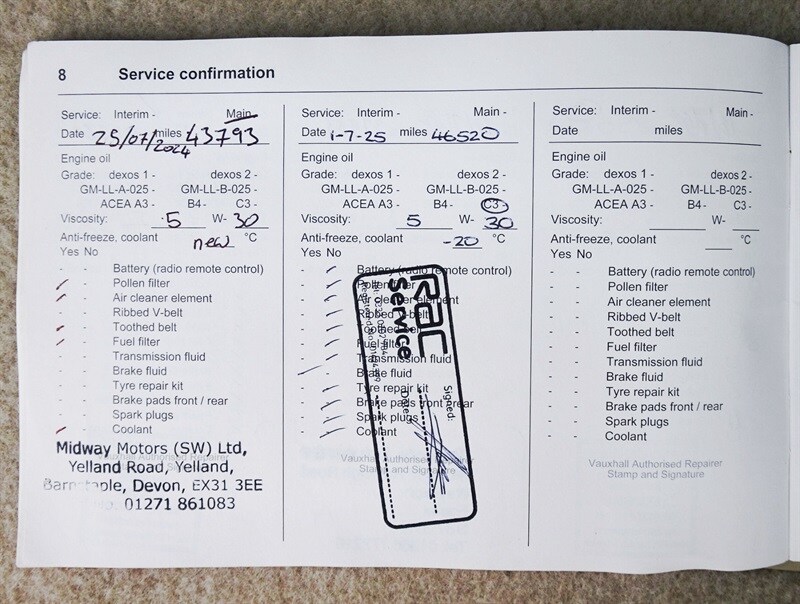 8 Service confirmation
Service: Interim - Main -
Date 25/07/2024 miles 43793
Engine oil
Grade: dexos 1 - dexos 2 -
GM-LL-A-025 - GM-LL-B-025 -
ACEA A3 - B4 - C3 -
Viscosity: 5 W- 30
Anti-freeze, coolant new °C
Yes No
- - Battery (radio remote control)
- Pollen filter
- Air cleaner element
- - Ribbed V-belt
- Toothed belt
- Fuel filter
- - Transmission fluid
- - Brake fluid
- - Tyre repair kit
- - Brake pads front / rear
- - Spark plugs
- Coolant
Vauxhall Authorised Repairer
Midway Motors (SW) Ltd,
Yelland Road, Yelland,
Barnstaple, Devon, EX31 3EE
01271 861083
Service: Interim - Main -
Date 1-7-25 miles 46520
Engine oil
Grade: dexos 1 - dexos 2 -
GM-LL-A-025 - GM-LL-B-025 -
ACEA A3 - B4 - C3 -
Viscosity: 5 W- 30
Anti-freeze, coolant -20 °C
Yes No
- Battery (radio remote control)
- Pollen filter
- Air cleaner element
- Ribbed V-belt
- Toothed belt
- Fuel filter
- Transmission fluid
- Brake fluid
- Tyre repair kit
- Brake pads front / rear
- Spark plugs
- Coolant
RAC
Service
Signed:
Date:
Vauxhall Authorised Repairer
Stamp and Signature
Service: Interim - Main -
Date miles
Engine oil
Grade: dexos 1 - dexos 2 -
GM-LL-A-025 - GM-LL-B-025 -
ACEA A3 - B4 - C3 -
Viscosity: W-
Anti-freeze, coolant °C
Yes No
- - Battery (radio remote control)
- - Pollen filter
- - Air cleaner element
- - Ribbed V-belt
- - Toothed belt
- - Fuel filter
- - Transmission fluid
- - Brake fluid
- - Tyre repair kit
- - Brake pads front / rear
- - Spark plugs
- - Coolant
Vauxhall Authorised Repairer
Stamp and Signature